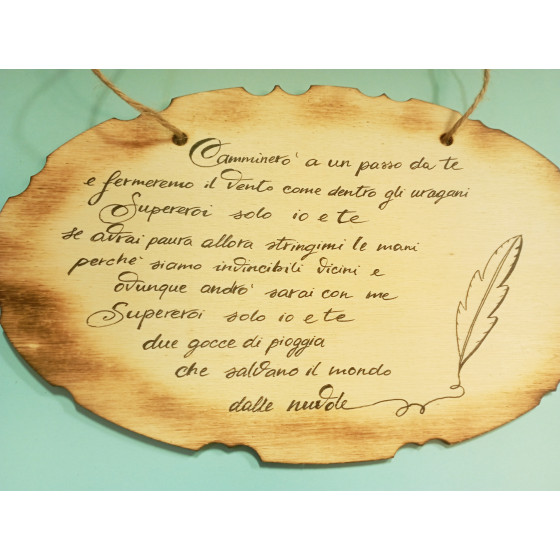 Camminerò a un passo da te
e fermeremo il vento come dentro gli uragani
Supereroi solo io e te
se avrai paura allora stringimi le mani
perchè siamo invincibili vicini e
ovunque andrò sarai con me
Supereroi solo io e te
due gocce di pioggia
che salvano il mondo
dalle nuvole